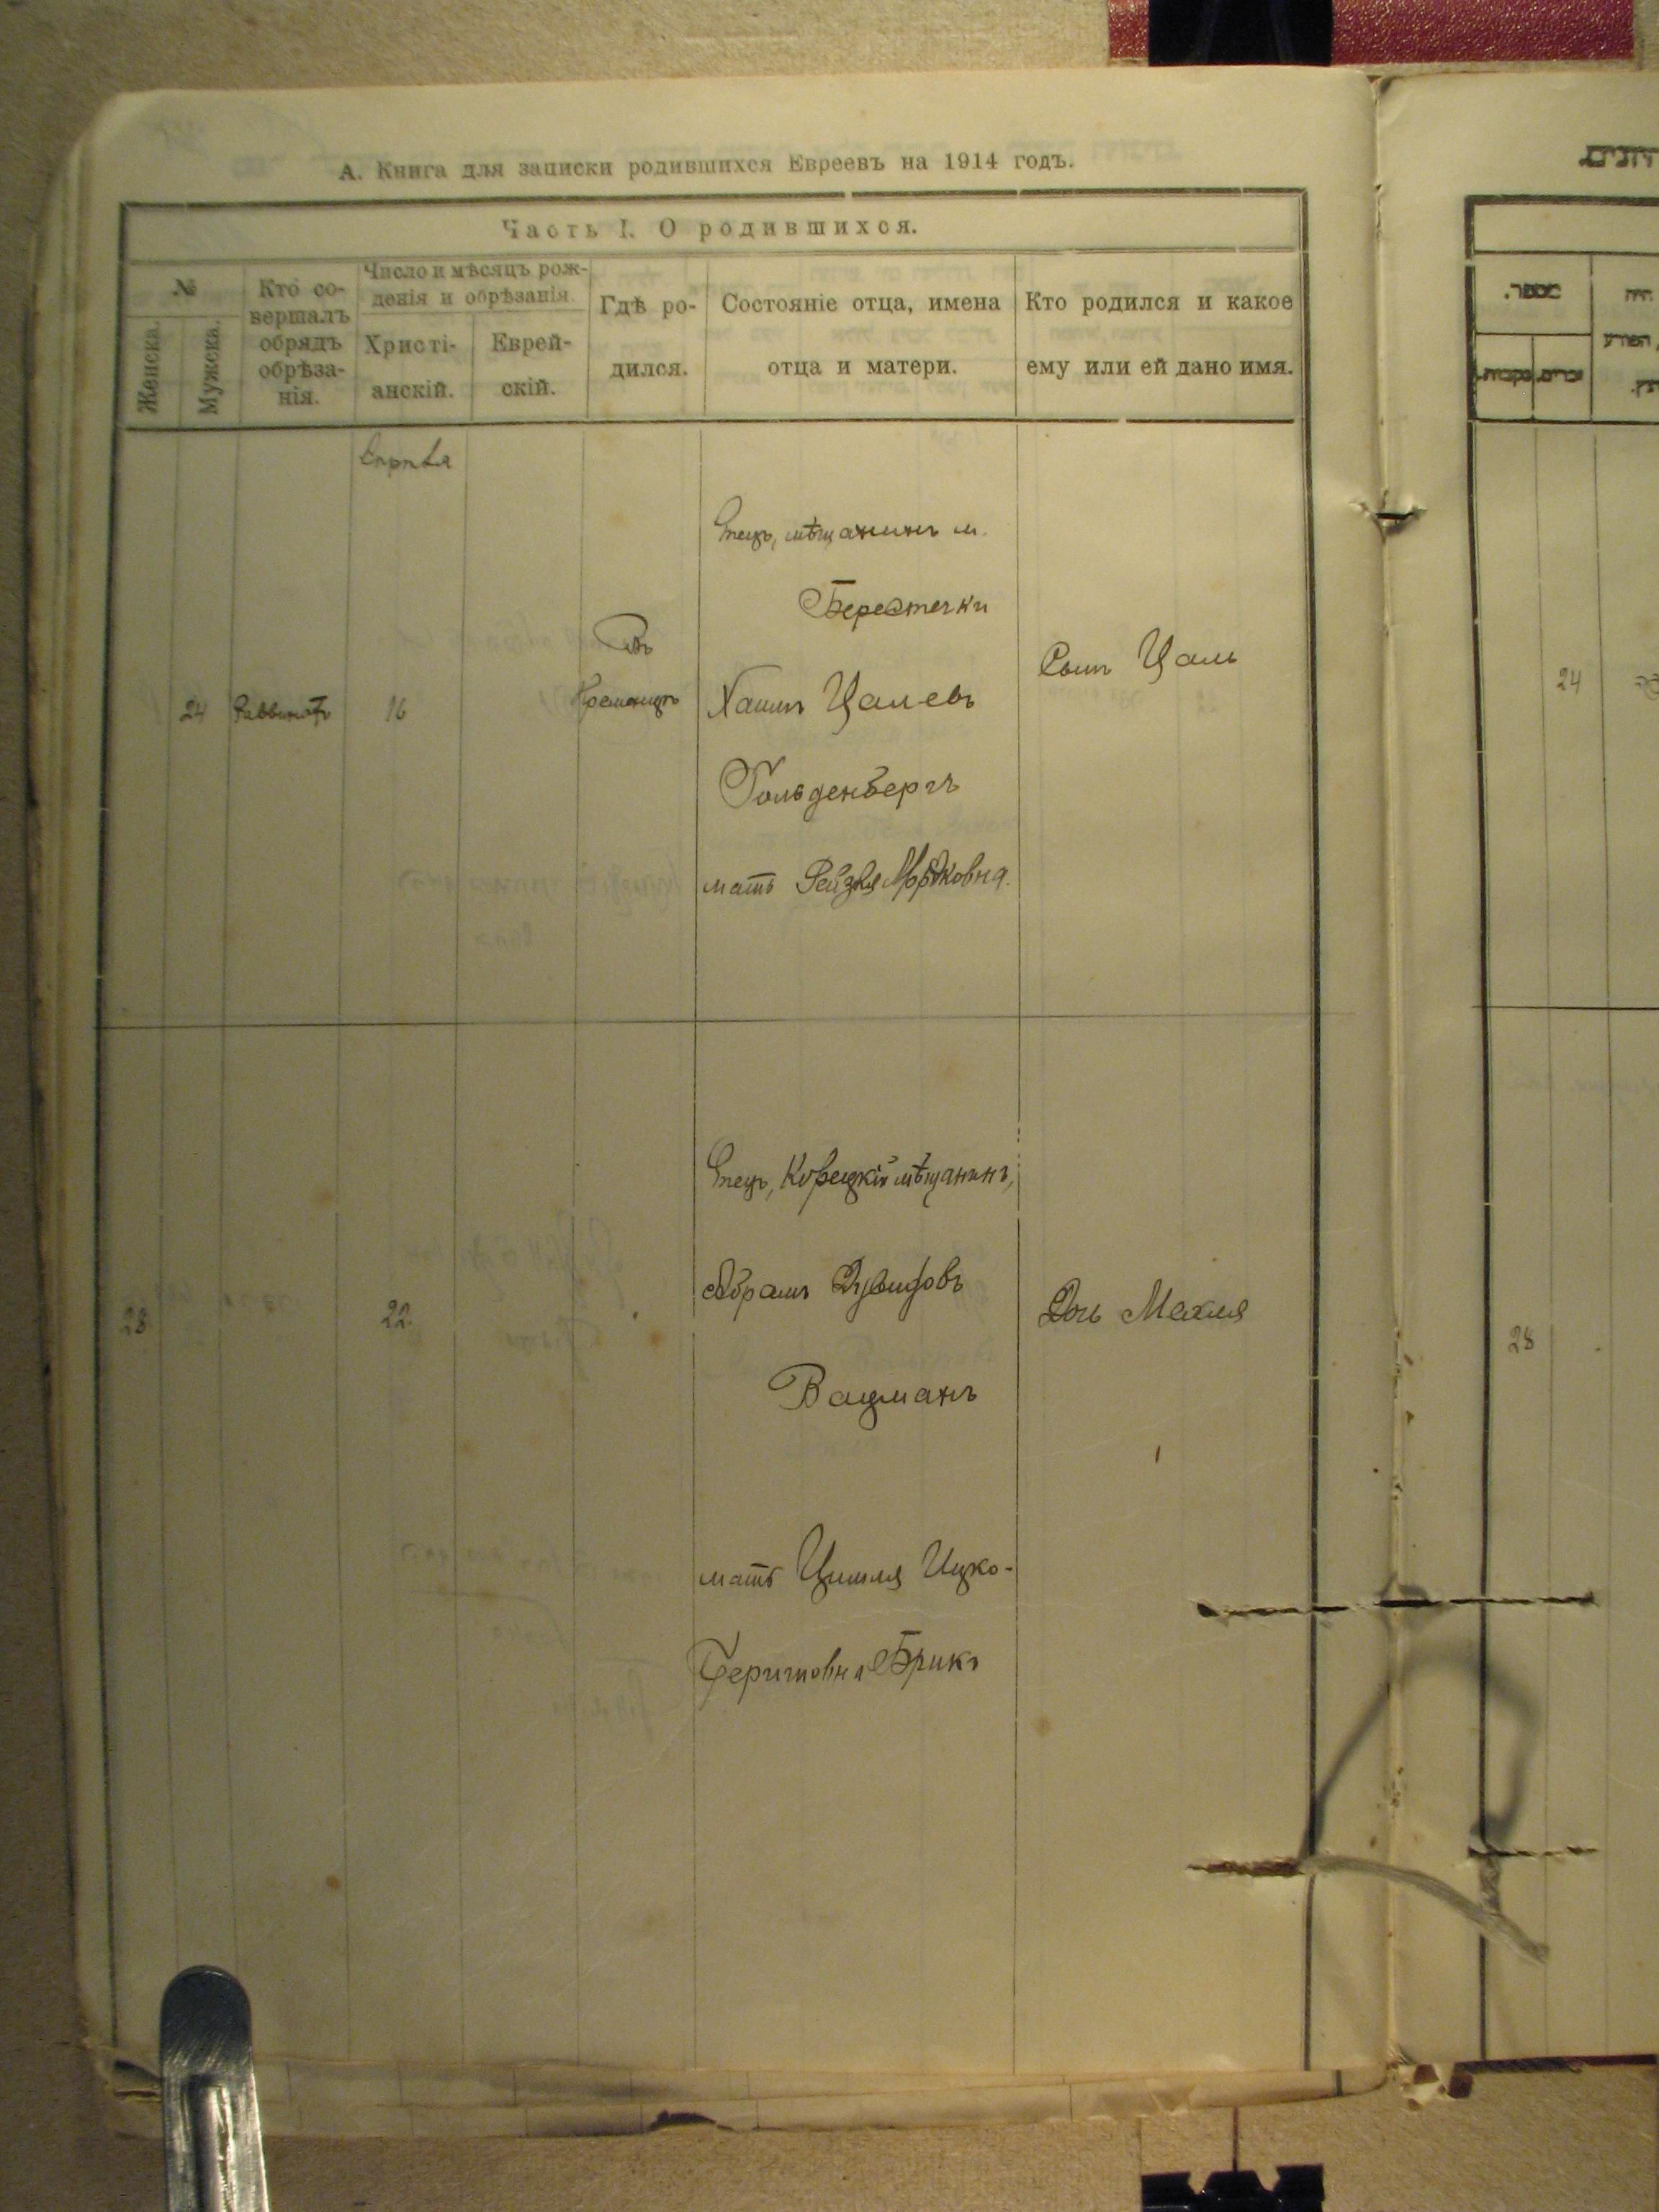 А. Книга для записки родившихся Евреевъ на 1914 годъ.
Часть I. О родившихся.
№
Женска.
Мужска.
Кто со-
вершалъ
обрядъ
обрѣза-
нія.
Число и мѣсяцъ рож-
денія и обрѣзанія.
Христі-
анскій.
Еврей-
скій.
Гдѣ ро-
дился.
Состояніе отца, имена
отца и матери.
Кто родился и какое
ему или ей дано имя.
Апрѣля
24
16
Въ
Кременцѣ
Отецъ, мѣщанинъ м.
Берестечки
Хаимъ Цалевъ
Гольденбергъ
мать Рейзя Мордковна.
Сынъ Цаль
28
22
Отецъ, Корецкій мѣщанинъ,
Абрамъ Дувидовъ
Вацманъ
мать Цишля Ицко-
Гершковна Брикъ
Дочь Махля
מספר.
זכרים.
נקבות.
24
28